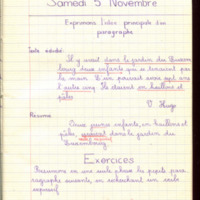 Samedi 5 Novembre
Exprimons l'idée principale d'un
paragraphe
Texte étudié:
Il y avait dans le jardin du Luxem
bourg deux enfants qui se tenaient par
la main. Ils pouvaient avoir sept ans
l'autre cinq. Ils étaient en haillons et
pâles
V. Hugo
Résumé
Deux jeunes enfants, en haillons et
pâles, dans le jardin du
Luxembourg.
Exercices
Résumons en une seule phrase les
paragraphes suivants, en